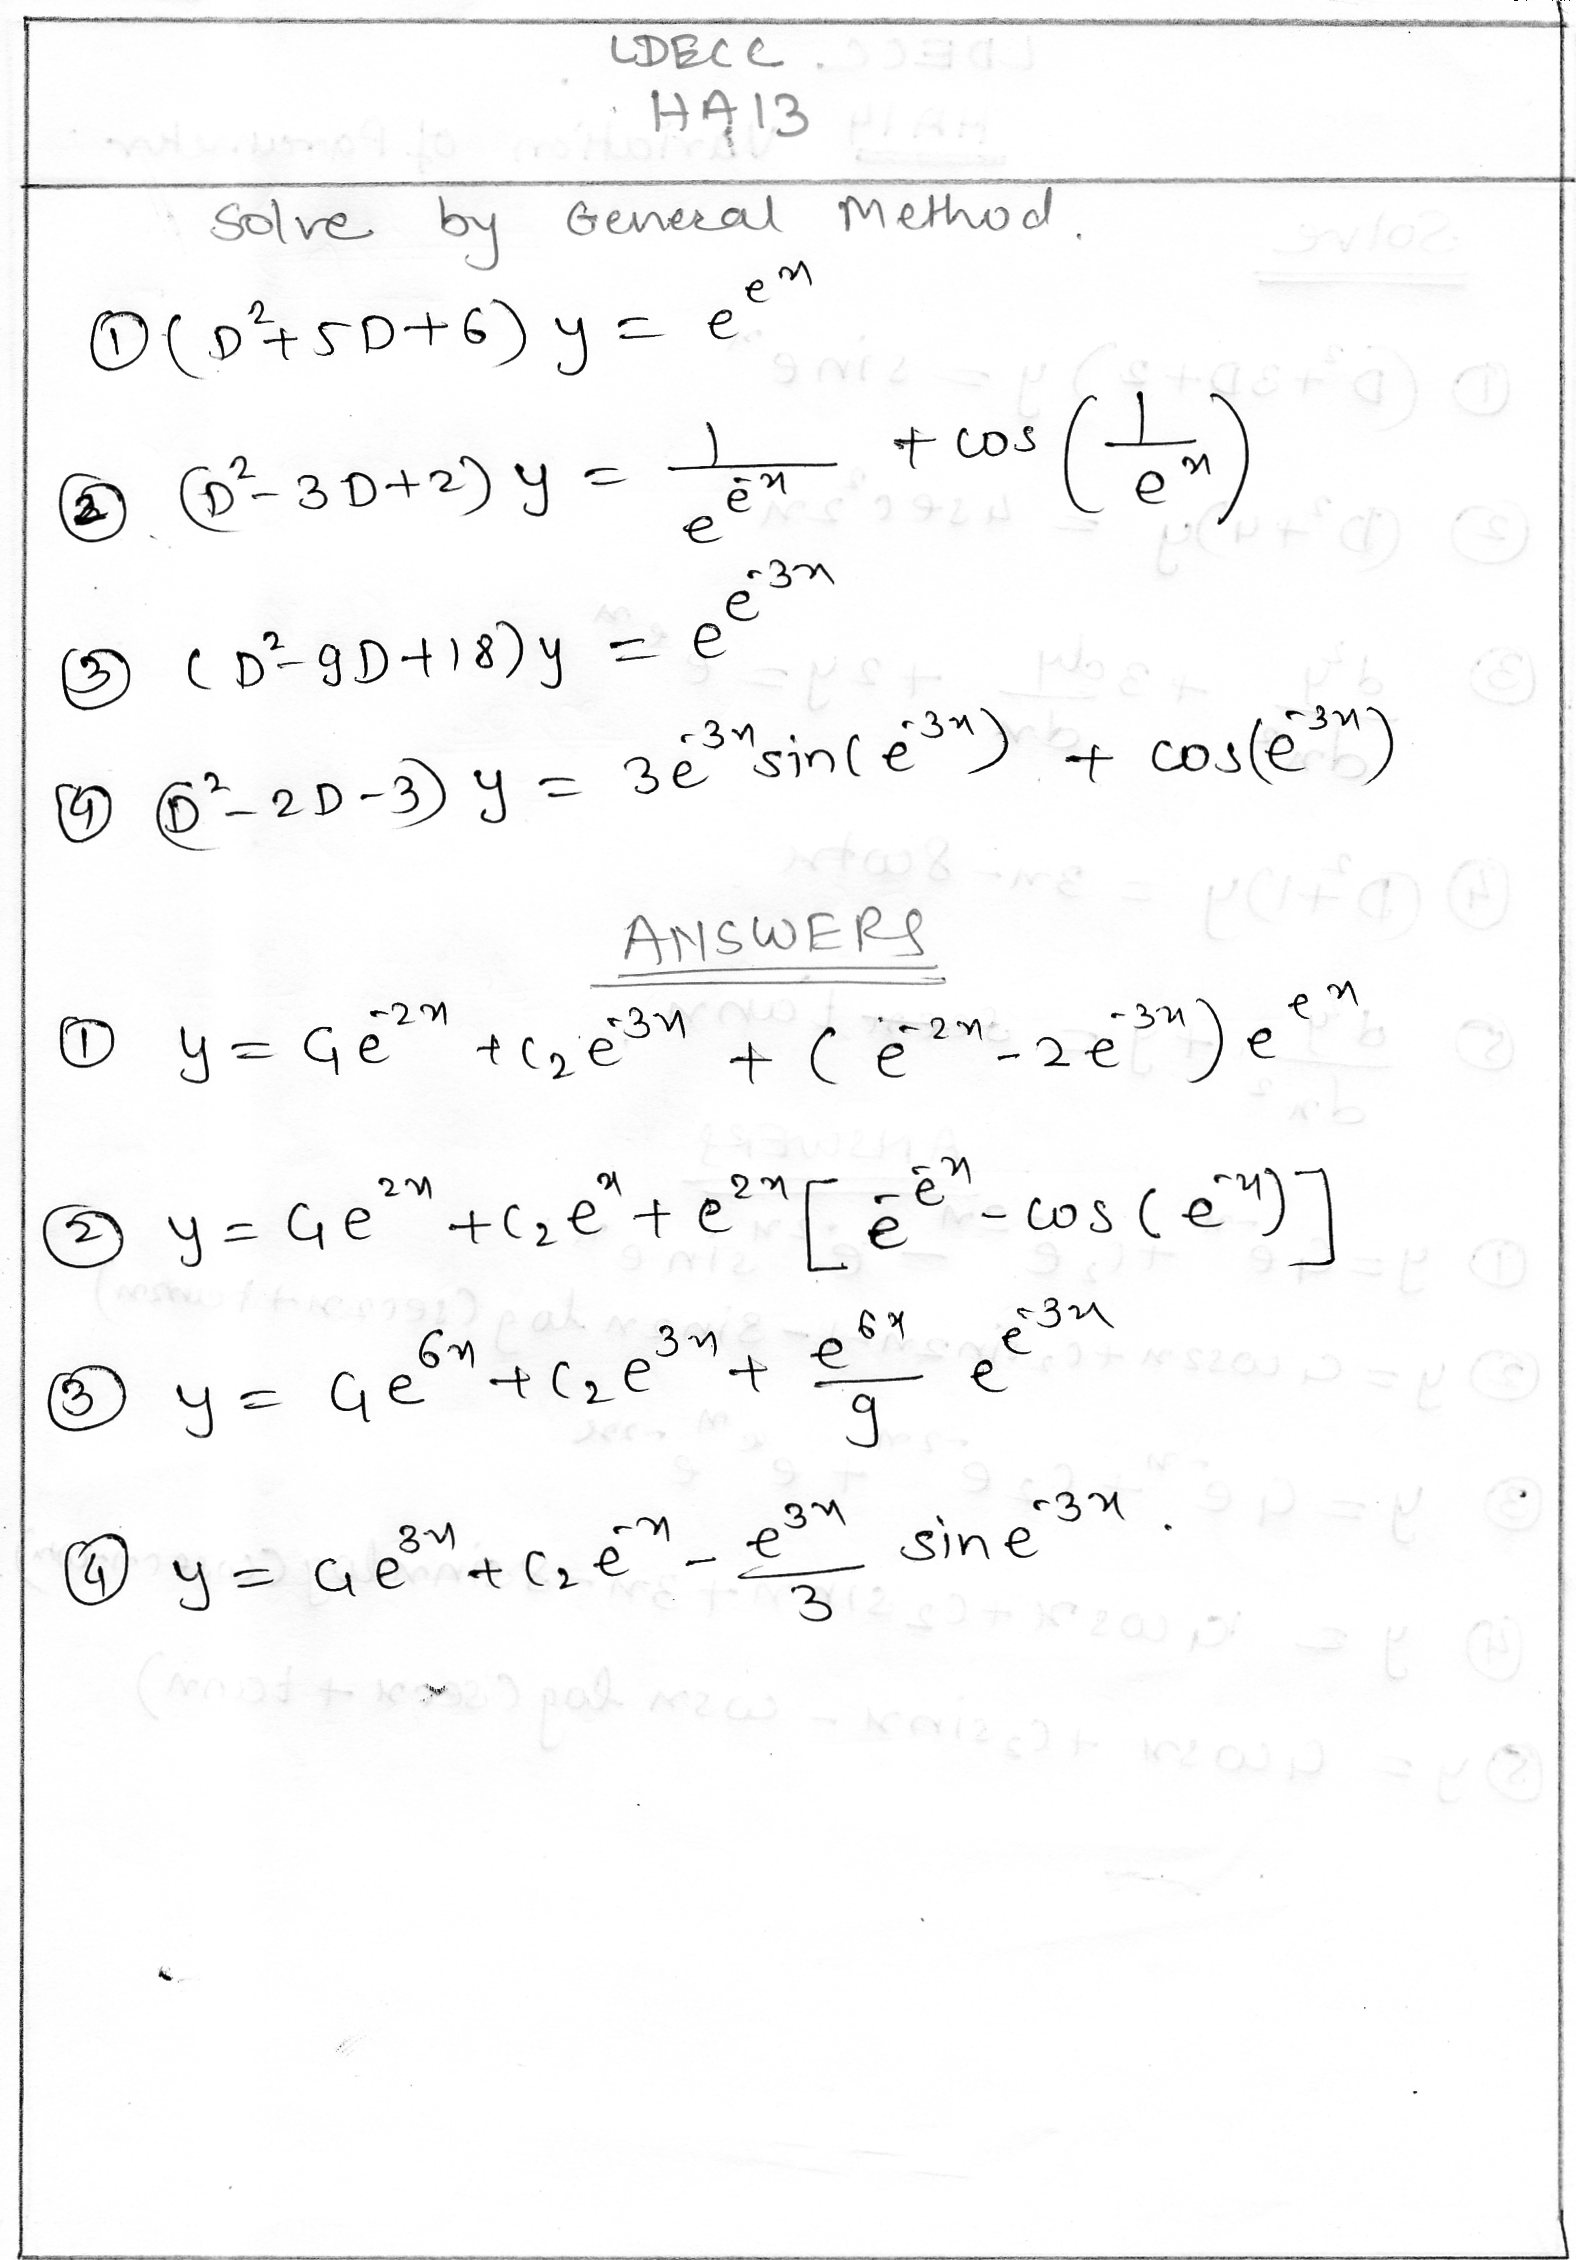 LDECC.
HA13
Solve by General Method.
① (D²+5D+6) y = e^{e^x}
② (D²-3D+2) y = 1/e^{e^{-x}} + cos(1/e^x)
③ (D²-9D+18) y = e^{e^{-3x}}
④ (D²-2D-3) y = 3e^{-3x} sin(e^{-3x}) + cos(e^{-3x})
ANSWERS
① y = C₁e^{-2x} + C₂e^{-3x} + (e^{-2x} - 2e^{-3x}) e^{e^x}
② y = C₁e^{2x} + C₂e^x + e^{2x} [e^{-e^{-x}} - cos(e^{-x})]
③ y = C₁e^{6x} + C₂e^{3x} + e^{6x}/9 e^{e^{-3x}}
④ y = C₁e^{3x} + C₂e^{-x} - e^{3x}/3 sin e^{-3x}.